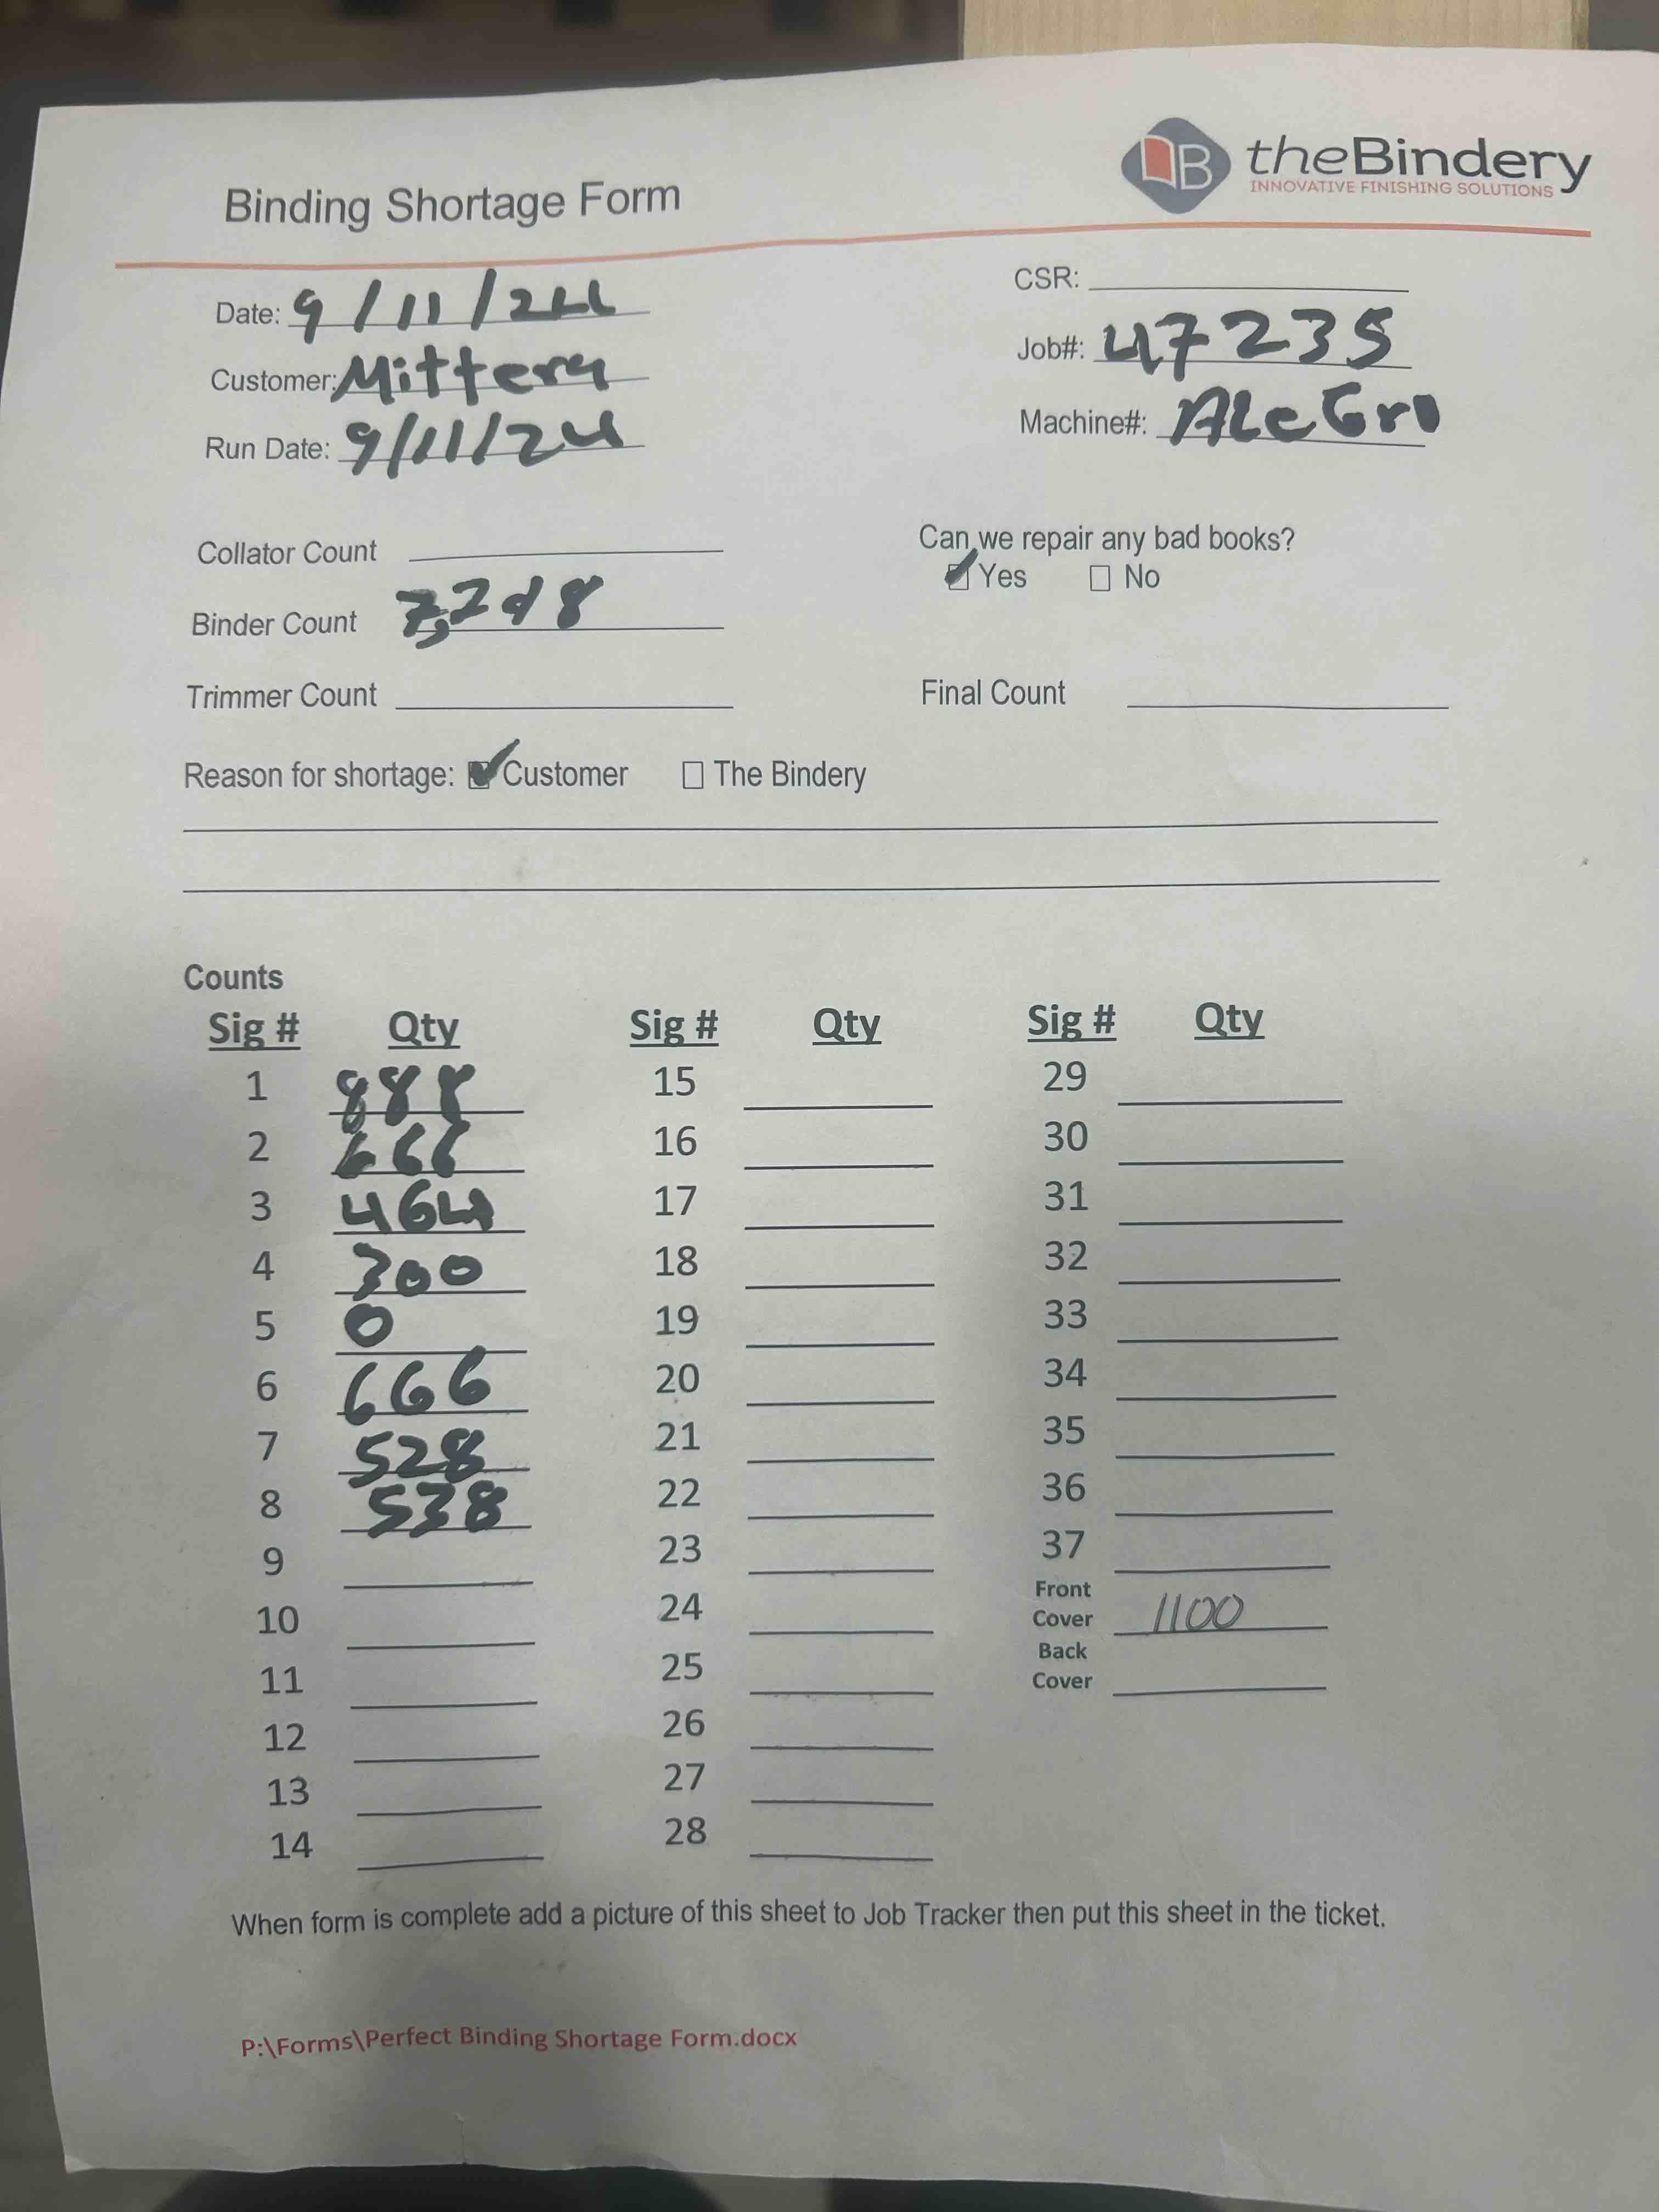 theBindery
INNOVATIVE FINISHING SOLUTIONS
Binding Shortage Form
Date: 9/11/24
CSR:
Customer: Mittera
Job#: 47235
Run Date: 9/11/24
Machine#: ALeGro
Collator Count
Can we repair any bad books?
Yes No
Binder Count
Trimmer Count
Final Count
Reason for shortage: Customer The Bindery
Counts
Sig # Qty Sig # Qty Sig # Qty
1 888 15 29
2 666 16 30
3 464 17 31
4 300 18 32
5 0 19 33
6 666 20 34
7 528 21 35
8 538 22 36
9 23 37
10 24 Front Cover 1100
11 25 Back Cover
12 26
13 27
14 28
When form is complete add a picture of this sheet to Job Tracker then put this sheet in the ticket.
P:\Forms\Perfect Binding Shortage Form.docx